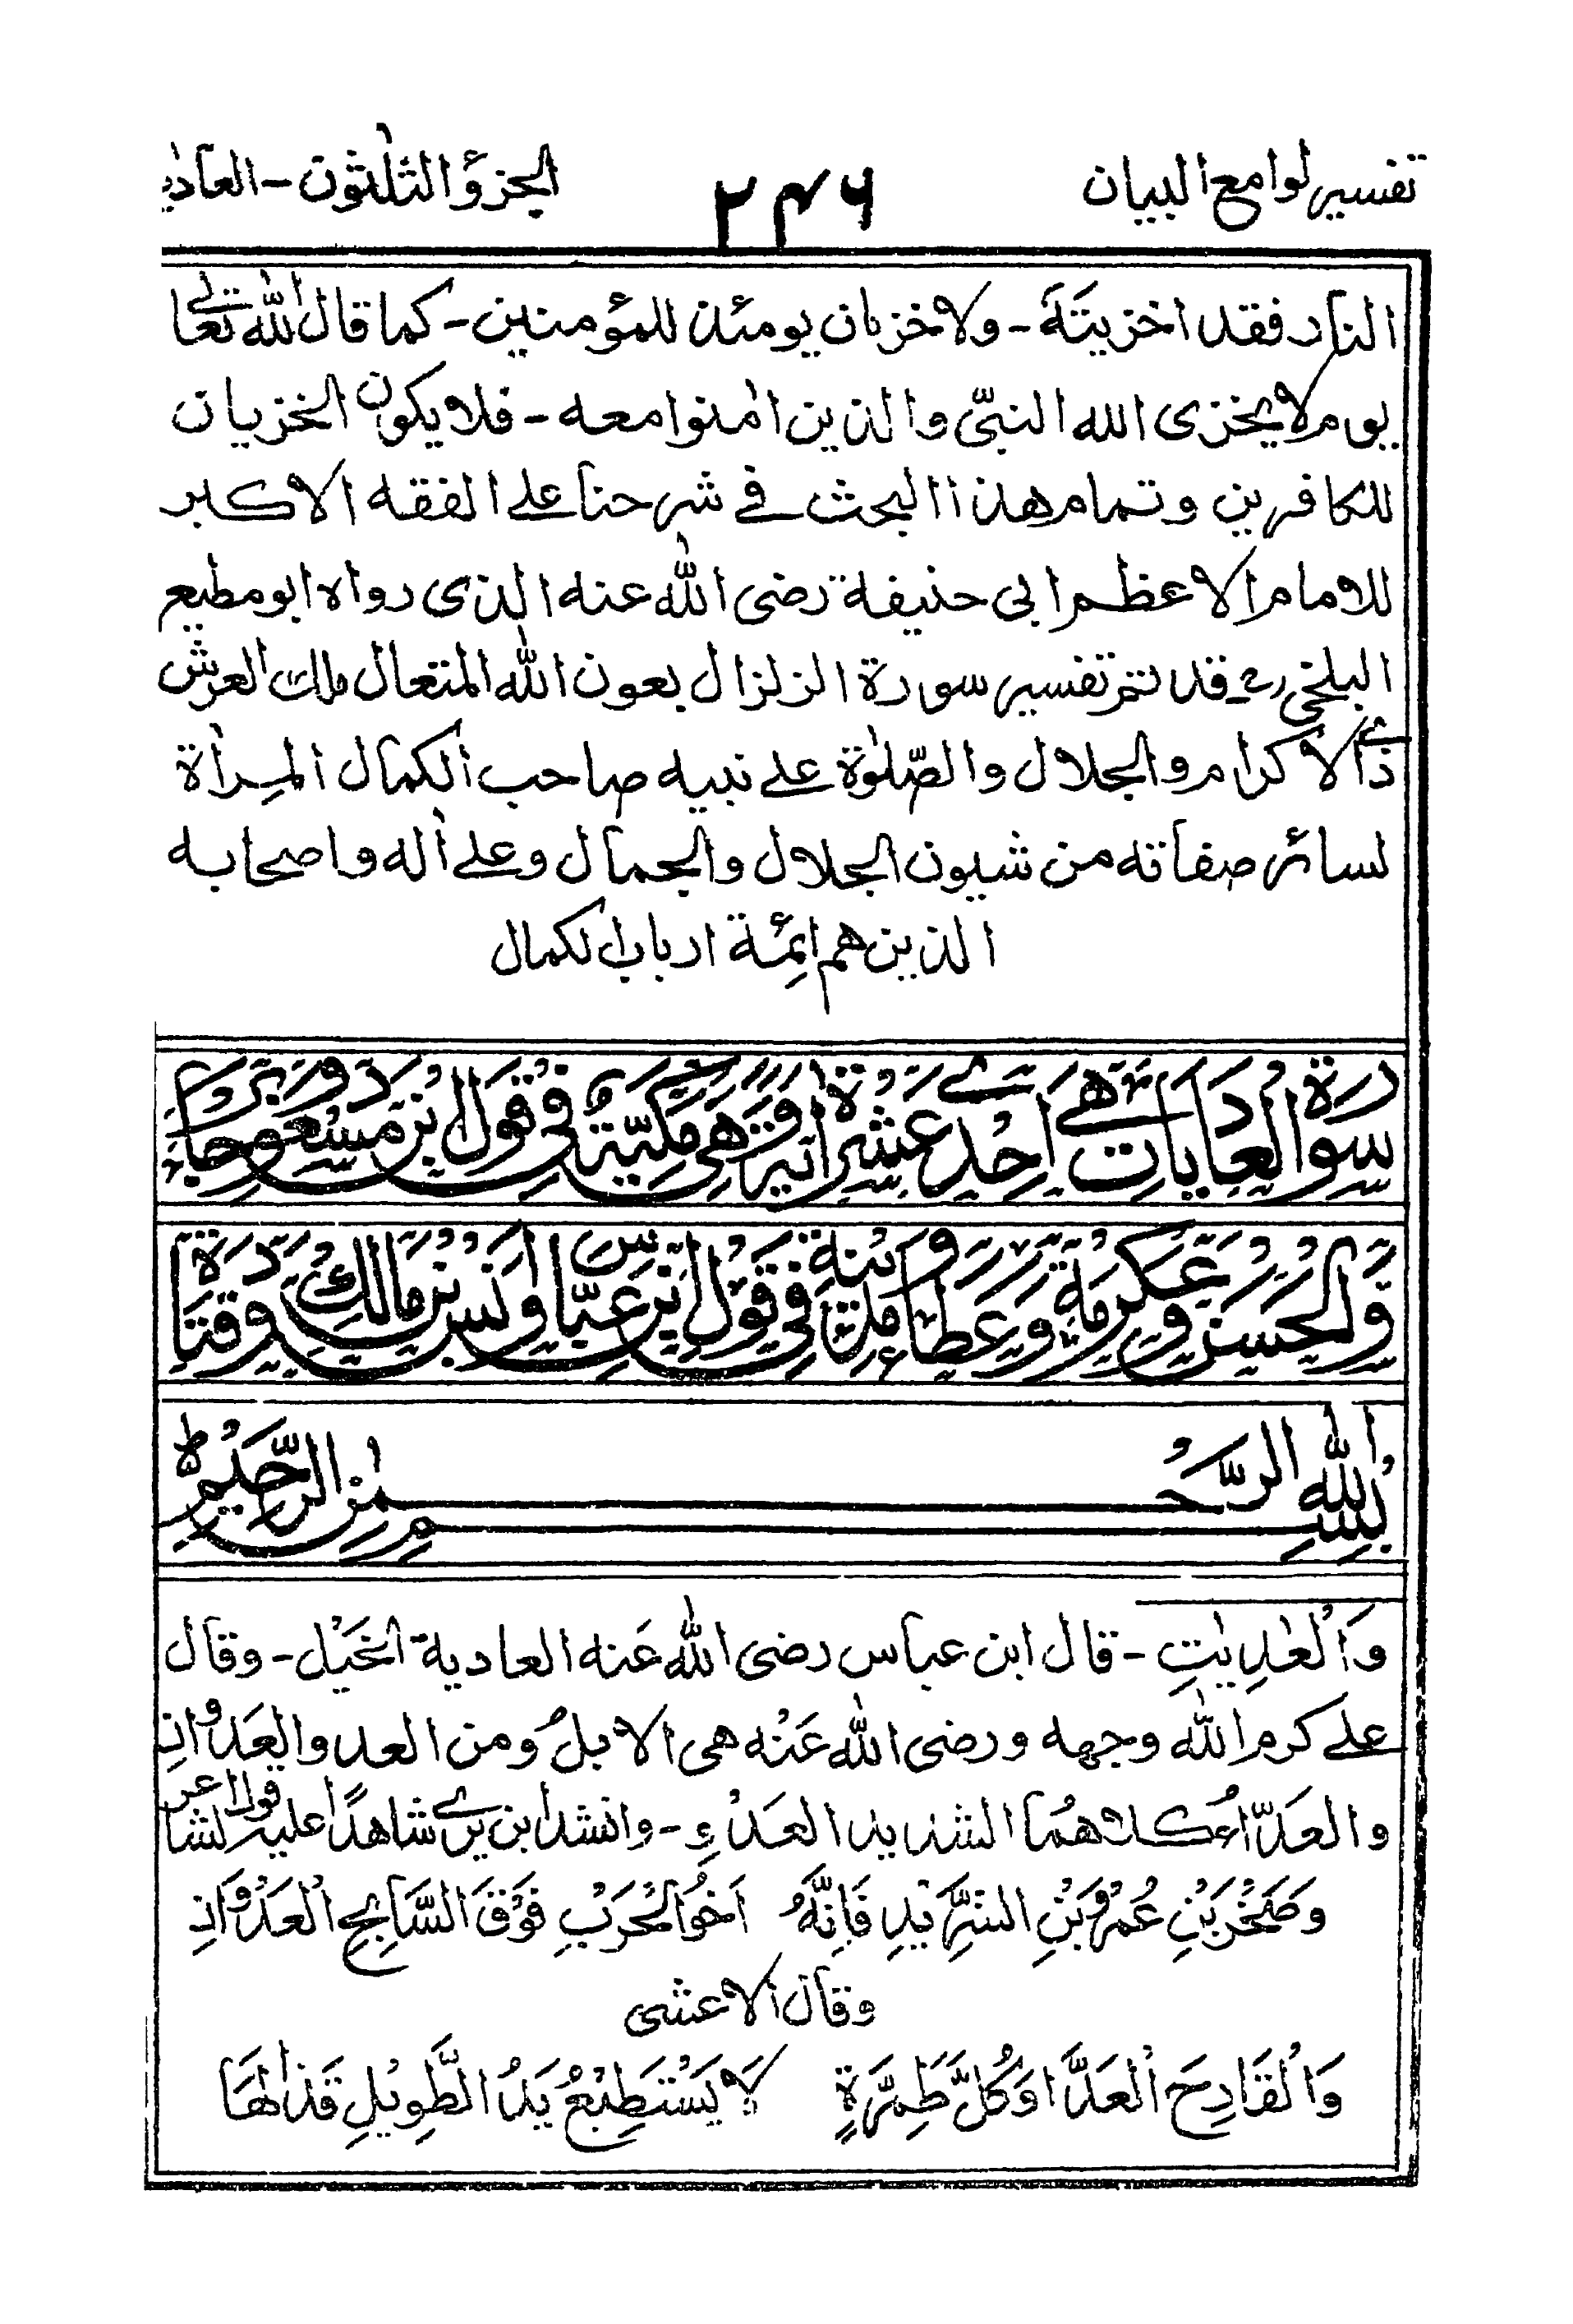 تفسير لوامع البيان ٢٣٤٦ الجزؤ الثلٰثون - العاديٰ
النار فقد اخزيتَهٗ - ولا خزيان يومئذ للمؤمنين - كما قال اللّٰه تعالٰى
يوم لا يخزى الله النبىّ والذين اٰمنوا معه - فلا يكون الخزيان
للكافرين وتمام هذا البحث فے شرحنا علے الفقه الاكبر
للامام الاعظم ابى حنيفة رضى اللّٰه عنه الذى رواه ابو مطيع
البلخى رح قد تم تفسير سورة الزلزال بعون اللّٰه المتعال ملك العرش
ذے الاكرام والجلال والصّلوٰة علے نبيه صاحب الكمال المِراٰة
لسائر صفاته من شيون الجلال والجمال وعلے اٰله واصحابه
الذين هم ائِمة ارباب الكمال
سورة العاديات هى احدى عشرة اٰية وهى مكيّة فى قول ابن مسعود وجابر
والحسن وعكرمة وعطاء ومدنية فى قول ابن عبّاس وانس بن مالك وقتادة
بِسْمِ اللّٰهِ الرَّحْمٰنِ الرَّحِيْمِ ط
وَالْعٰدِيٰتِ - قال ابن عباس رضى اللّٰه عَنه العادية الخَيْل - وقال
علے كرم اللّٰه وجهه ورضى اللّٰه عَنْه هى الابلُ ومن العدو العَدوانِ
والعَدّاءُ كلاهُما الشديد العَدْوِ - وانشد ابن برے شاهدًا عليه قول الشاعر
وصَخْر بْنِ عُمَرْو بْنِ الشَّرِيْدِ فَاِنَّهٗ اَخُو الْحَرْبِ فَوْقَ السَّابِحِ الْعَدْوَانِ
وقال الاعشى
وَالْقَادِحَ الْعَدَّا وَكُلَّ طِمِرَّةٍ لَا يَسْتَطِيْعُ يَدُ الطَّوِيْلِ قَذَالَهَا